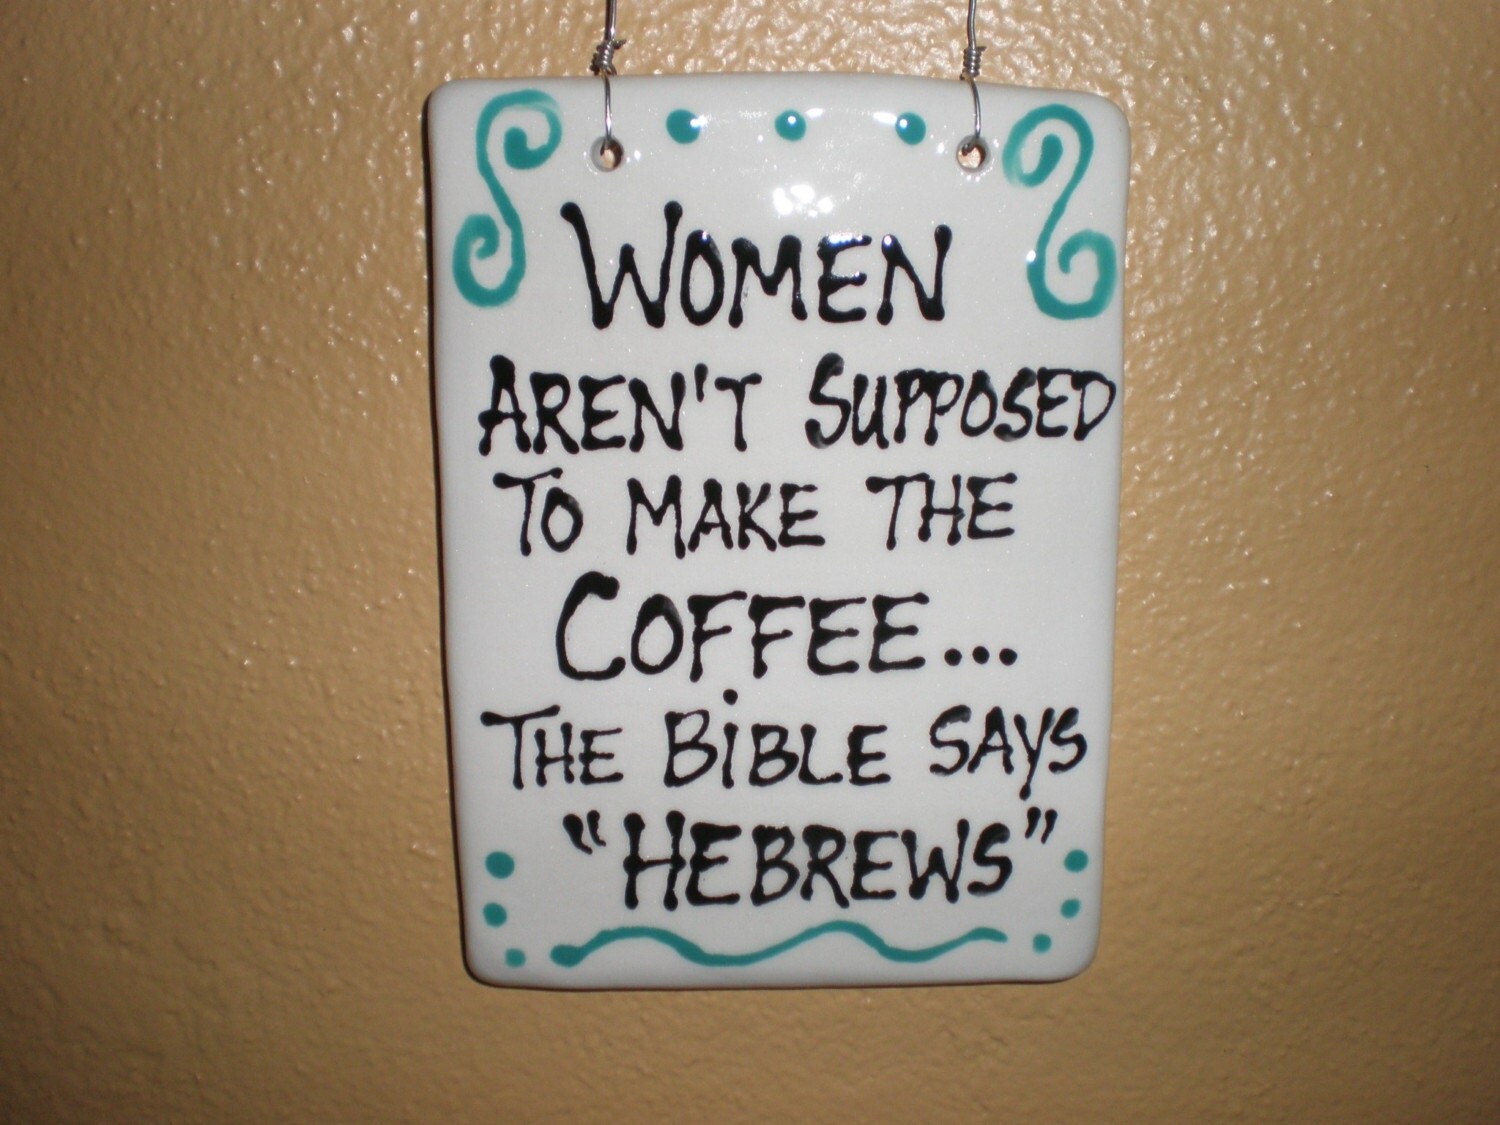 WOMEN
AREN'T SUPPOSED
TO MAKE THE
COFFEE...
THE BiBLE SAYS
"HEBREWS"